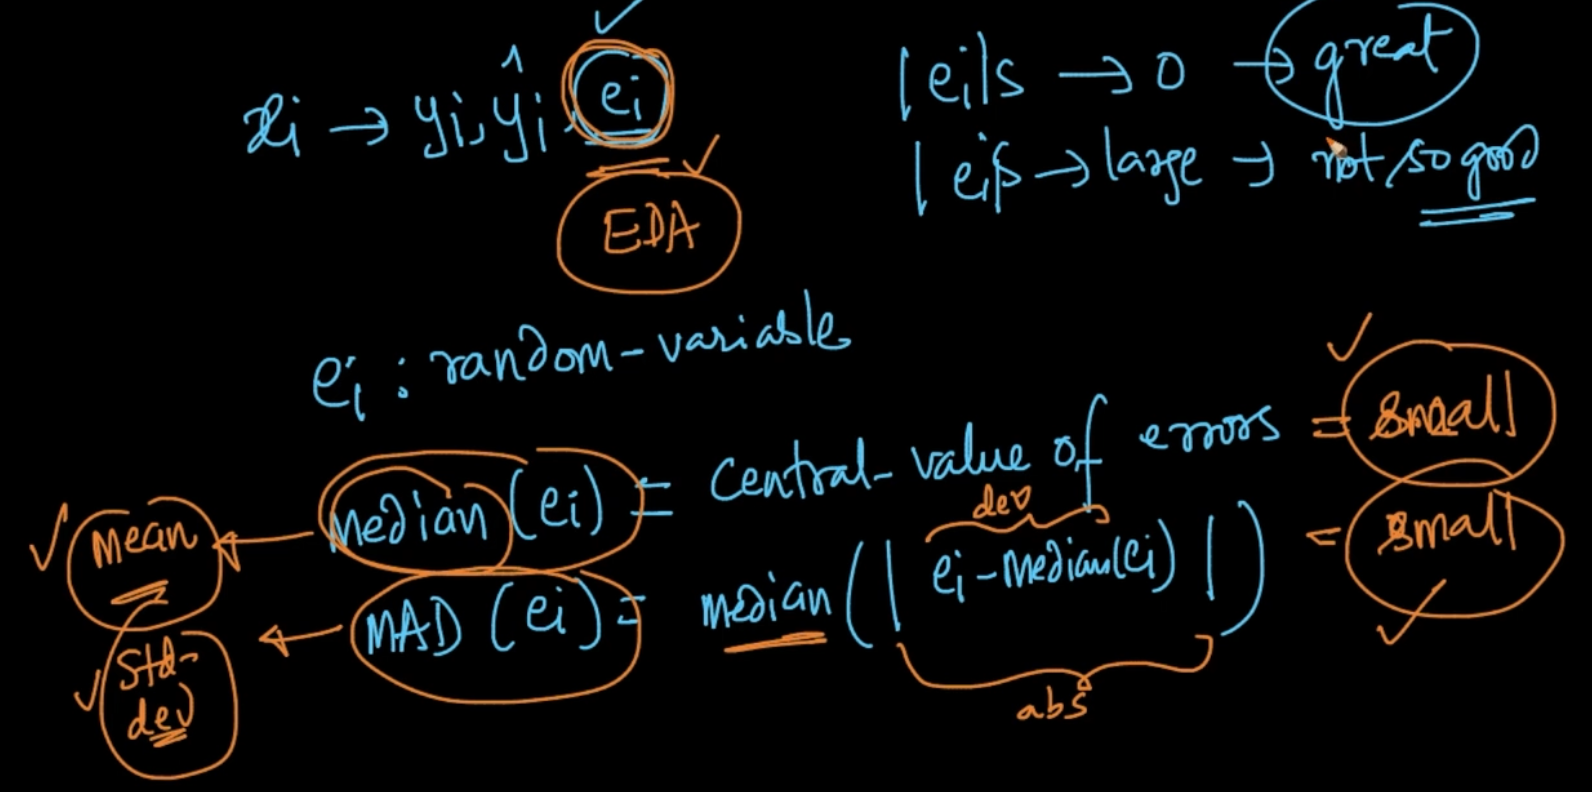 xi → yi, ŷi, ei
|ei|s → 0 → great
|ei|s → large → not so good
EDA
ei : random-variable
mean ← median (ei) = central-value of errors = small
dev
std-dev ← MAD (ei) = median (| ei - median(ei) |) = small
abs